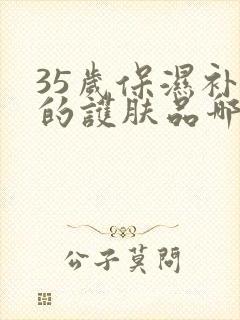 35歲保濕补
的護肤品哪
公子莫問